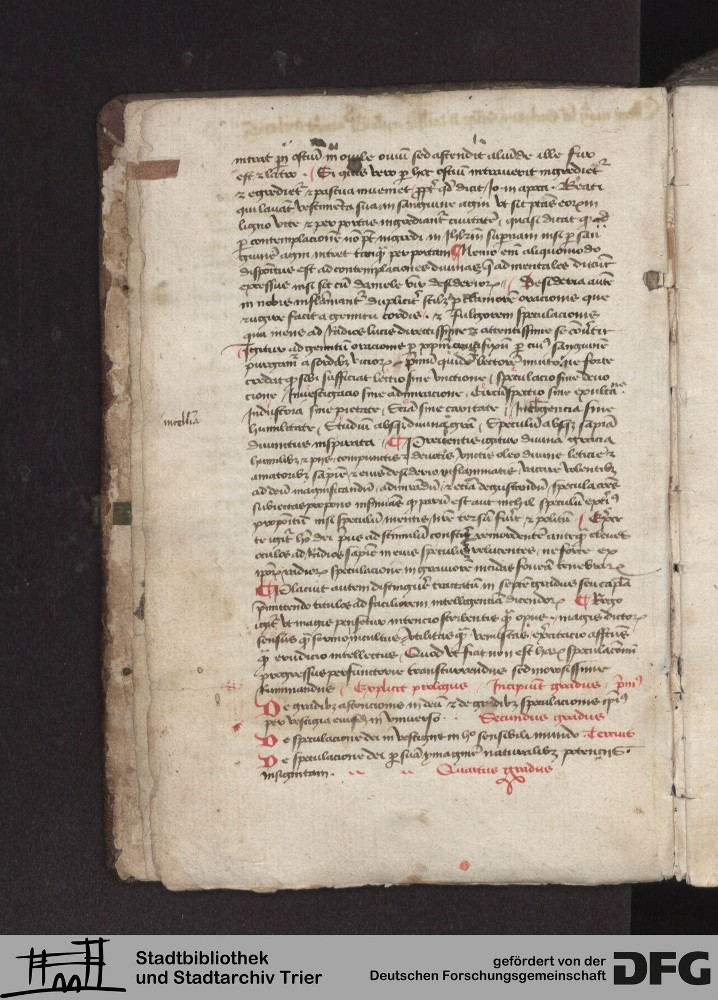 intrat p ostiu in ouile ouiu sed ascendit aliunde ille fur
est et latro . Si quis vero p hoc ostiu introierit ingrediet
et egrediet et pascua inueniet . dicit Jo in apoca . Beati
qui lauant vestimenta sua in sanguine agni vt sit ptas eorum in
ligno vite et per portas ingrediantr ciuitate , quasi dicat q ad
p contemplacione no pt ingredi in Jhrlm supernam nisi p san
guine agni intret tanq per portam Nemo em aliquomodo
dispositus est ad contemplaciones diuinas q ad mentales ducut
excessus nisi sit cu daniele vir desiderior . Desideria aute
in nobis inflamantr duplicitr scilz p clamore oracionis que
rugire facit a gemitu cordis . et fulgorem speculacionis
qua mens ad radios lucis directissime et intentissime se conutit
Igitur ad gemitu oracionis p xpm crucifixu p cui sanguine
purgamr a sordibz vicior primu quide lectore inuito , ne forte
credat q sibi sufficiat lectio sine vnctione , speculacio sine deuo
cione , Inuestigacio sine admiracione , Circuspectio sine exultacione
Industria sine pietate , Sciencia sine caritate , Intelligencia sine
intellia
humilitate , Studiu absqz diuina gra , Speculu absqz sapia
diuinitus inspirata . Preuentis igitur diuina gracia
humilibz et pijs , compunctis et deuotis vnctis oleo diuine leticie et
amatoribz sapie et eius desiderio inflammatis , vacare volentibz
ad deu magnificandu , admiradu , et etia degustandu , speculaciones
subiectas propono insinuas q paru est aut nichil speculu exteri
propositu nisi speculu mentis nre tersu fuerit et politu . Exerce
te igitr ho dei prius ad stimulu conscie remordente anteq eleues
oculos ad radios sapie in eius speculis relucentes , ne forte ex
ipor radior speculacione in grauiore incidas fouea tenebrar
Placuit autem distinguere tractatu in septe gradus seu capla
pmittendo titulos ad faciliorem intelligencia dicendor . Rogo
igitr vt magis pensetur intencio scribentis q opus , magis dictor
sensus q sermo incultus , vtilitas q venustas , exercitacio affectus
q erudicio intellectus , Quod vt fiat non est har speculacionu
progressus perfunctorie transcurrendus sed morosissime
ruminandus . Explicit prologus . Incipiunt gradus . primus
De gradibz ascensionis in deu et de gradibz speculacionis ipius
per vestigia eius in vniuerso . Secundus gradus
De speculacione dei in vestigijs in hoc sensibili mundo . Tercius
De speculacione dei p sua ymagine naturalibz potencijs
insignitam . Quartus gradus
Stadtbibliothek
und Stadtarchiv Trier
gefördert von der
Deutschen Forschungsgemeinschaft
DFG